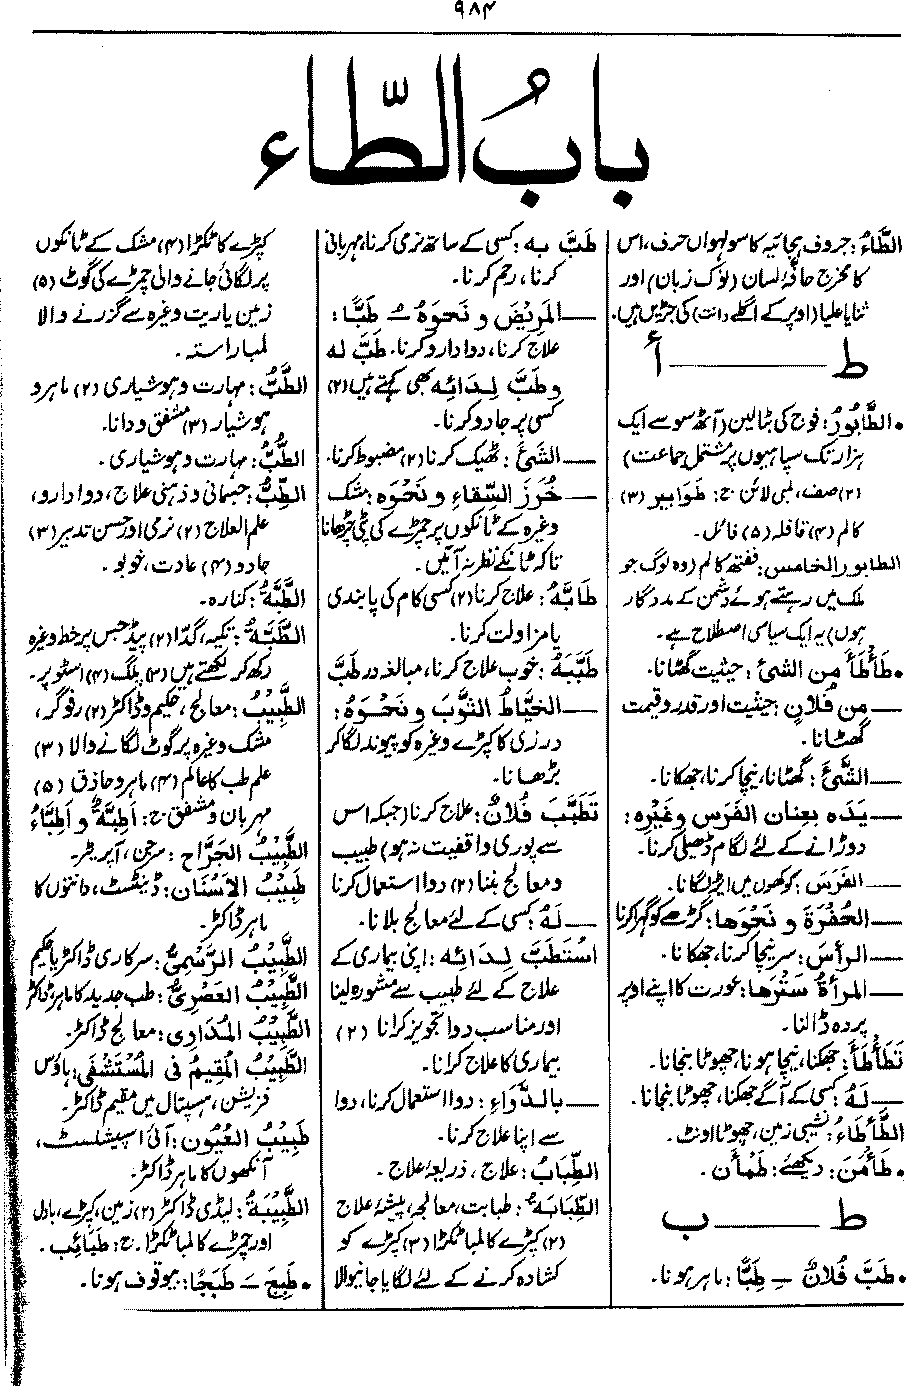 ۹۸۴
بابُ الطَّاء
الطَّاءُ: حروف ہجائیہ کا سولہواں حرف، اس
کا مخرج حافۂ لسان (نوک زبان) اور
ثنایا علیا (اوپر کے اگلے دانت) کی جڑیں ہیں۔
ط — أ
• الطَّابُورُ: فوج کی بٹالین (آٹھ سو سے ایک
ہزار تک سپاہیوں پر مشتمل جماعت)
(۲) صف، لمبی لائن ج: طَوَابیر (۳)
کالم (۴) قافلہ (۵) فائل۔
الطابور الخامس: ففتھ کالم (وہ لوگ جو
ملک میں رہتے ہوئے دشمن کے مددگار
ہوں) یہ ایک سیاسی اصطلاح ہے۔
• طَأْطَأَ مِن الشئ: حیثیت گھٹانا۔
— مِن فُلانٍ: حیثیت اور قدر و قیمت
گھٹانا۔
— الشَّئَ: گھٹانا، نیچا کرنا، جھکانا۔
— یَدَہ بِعِنان الفَرَس وغَیْرِہ:
دوڑانے کے لئے لگام ڈھیلی کرنا۔
— الفَرَسَ: کوکھوں میں ایڑ لگانا۔
— الحُفْرَةَ و نَحْوَها: گڑھے کو گہرا کرنا
— الرأسَ: سر نیچا کرنا، جھکانا۔
— المرأةُ سَتْرَها: عورت کا اپنے اوپر
پردہ ڈالنا۔
تَطَأْطَأَ: جھکنا، نیچا ہونا، چھوٹا بنجانا۔
— لَہُ: کسی کے آگے جھکنا، چھوٹا بنجانا۔
الطَّأْطَاءُ: نشیبی زمین، چھوٹا اونٹ۔
• طَأْمَنَ: دیکھئے: طَمْأَن۔
ط — ب
• طَبَّ فُلانٌ ـِ طِبًّا: ماہر ہونا۔
طَبَّ بہ: کسی کے ساتھ نرمی کرنا، مہربانی
کرنا، رحم کرنا۔
— المَرِیْضَ و نَحوَہ ـُ طَبًّا:
علاج کرنا، دوا دارو کرنا۔ طَبَّ لہ
و طَبَّ لِدَائِہ بھی کہتے ہیں (۲)
کسی پر جادو کرنا۔
— الشئَ: ٹھیک کرنا (۲) مضبوط کرنا۔
— خُرَزَ السِّقَاءِ و نَحْوَہ: مشک
وغیرہ کے ٹانکوں پر چمڑے کی پٹی چڑھانا
تاکہ ٹانکے نظر نہ آئیں۔
طَابَّہُ: علاج کرنا (۲) کسی کام کی پابندی
یا مزاولت کرنا۔
طَبَّبَہُ: خوب علاج کرنا، مبالغہ در طَبَّ
— الخَیَّاطُ الثَّوبَ و نَحْوَہُ:
درزی کا کپڑے وغیرہ کو پیوند لگا کر
بڑھانا۔
تَطَبَّبَ فُلانٌ: علاج کرنا (جبکہ اس
سے پوری واقفیت نہ ہو) طبیب
و معالج بننا (۲) دوا استعمال کرنا
— لَہُ: کسی کے لئے معالج بلانا۔
اسْتَطَبَّ لِدَائِہ: اپنی بیماری کے
علاج کے لئے طبیب سے مشورہ لینا
اور مناسب دوا تجویز کرانا (۲)
بیماری کا علاج کرانا۔
— بالدَّوَاءِ: دوا استعمال کرنا، دوا
سے اپنا علاج کرنا۔
الطِّبَابُ: علاج، ذریعۂ علاج۔
الطِّبَابَةُ: طبابت، معالجہ، پیشۂ علاج
(۲) کپڑے کا لمبا ٹکڑا (۳) کپڑے کو
کشادہ کرنے کے لئے لگایا جانیوالا
کپڑے کا ٹکڑا (۴) مشک کے ٹانکوں
پر لگائی جانے والی چمڑے کی گوٹ (۵)
زمین یا ریت وغیرہ سے گزرنے والا
لمبا راستہ۔
الطَّبُّ: مہارت و ہوشیاری (۲) ماہر و
ہوشیار (۳) مشفق و دانا۔
الطُّبُّ: مہارت و ہوشیاری۔
الطِّبُّ: جسمانی و ذہنی علاج، دوا دارو،
علم العلاج (۲) نرمی اور حسن تدبیر (۳)
جادو (۴) عادت، خوبو۔
الطُّبَّةُ: کنارہ۔
الطَّبَّةُ: تکیہ، گدا (۲) پیڈ جس پر خط وغیرہ
رکھ کر لکھتے ہیں (۳) پلگ (۴) اسٹوپر۔
الطَّبِیْبُ: معالج، حکیم و ڈاکٹر (۲) رفوگر،
مشک وغیرہ پر گوٹ لگانے والا (۳)
علم طب کا عالم (۴) ماہر و حاذق (۵)
مہربان و مشفق ج: أطِبَّةٌ و أطِبَّاءُ
الطَّبِیْبُ الجَرَّاح: سرجن، آپریٹر۔
طَبِیْبُ الأسْنَان: ڈینٹسٹ، دانتوں کا
ماہر ڈاکٹر۔
الطَّبِیْبُ الرَّسْمِیُّ: سرکاری ڈاکٹر یا حکیم
الطَّبِیْبُ العَصْرِیُّ: طب جدید کا ماہر ڈاکٹر
الطَّبِیْبُ المُدَاوِی: معالج ڈاکٹر۔
الطَّبِیْبُ المُقِیمُ فی المُسْتَشْفَی: ہاؤس
فزیشن، ہسپتال میں مقیم ڈاکٹر۔
طَبِیْبُ العُیُون: آئی اسپیشلسٹ،
آنکھوں کا ماہر ڈاکٹر۔
الطَّبِیْبَةُ: لیڈی ڈاکٹر (۲) زمین، کپڑے، بادل
اور چمڑے کا لمبا ٹکڑا۔ ج: طَبَائِب۔
• طَبِجَ ـَ طَبَجًا: بیوقوف ہونا۔